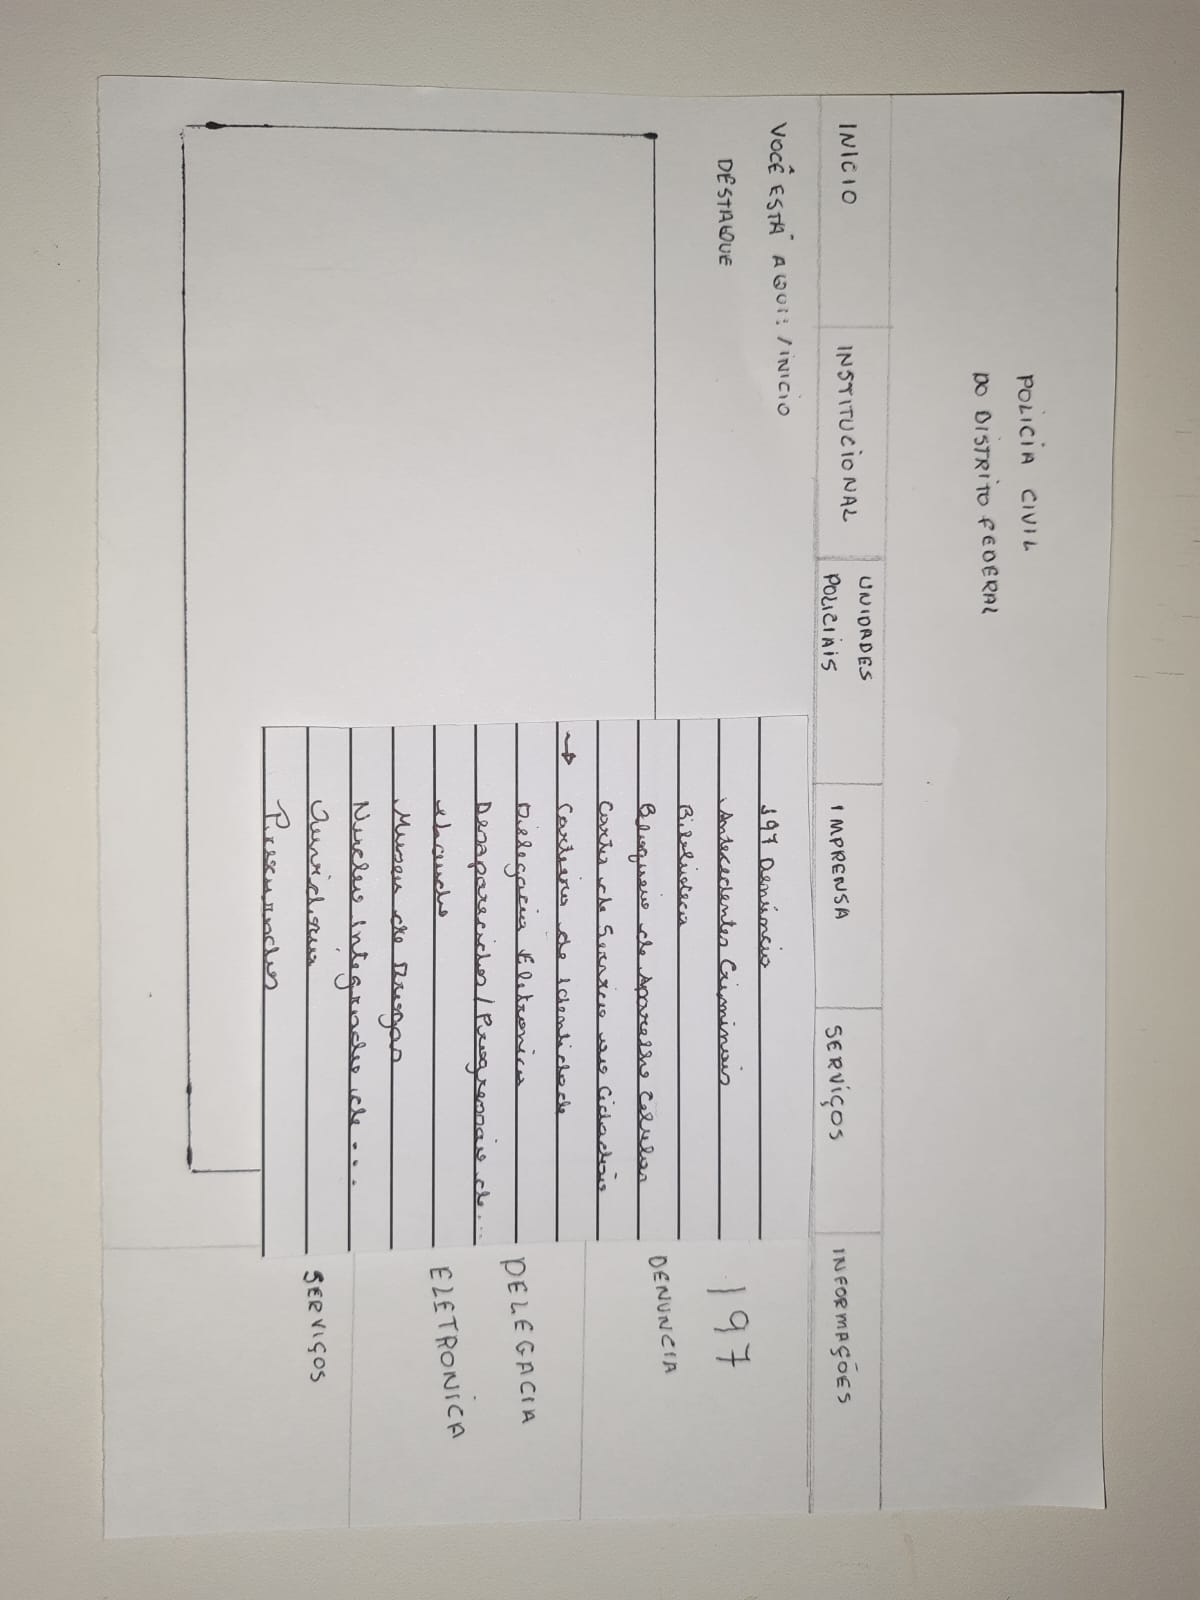 POLICIA CIVIL
DO DISTRITO FEDERAL
INICIO
INSTITUCIONAL
UNIDADES
POLICIAIS
IMPRENSA
SERVIÇOS
INFORMAÇÕES
VOCÊ ESTÁ AQUI: /INICIO
DESTAQUE
197 Denúncia
Antecedentes Criminais
Biblioteca
Bloqueio de Aparelho Celular
Carta de Serviço ao Cidadão
→ Carteira de Identidade
Delegacia Eletronica
Desaparecidos / Progressão de...
Laudo
Museu de Drogas
Nucleo Integrado de ...
Ouvidoria
Procurados
197
DENUNCIA
DELEGACIA
ELETRONICA
SERVIÇOS